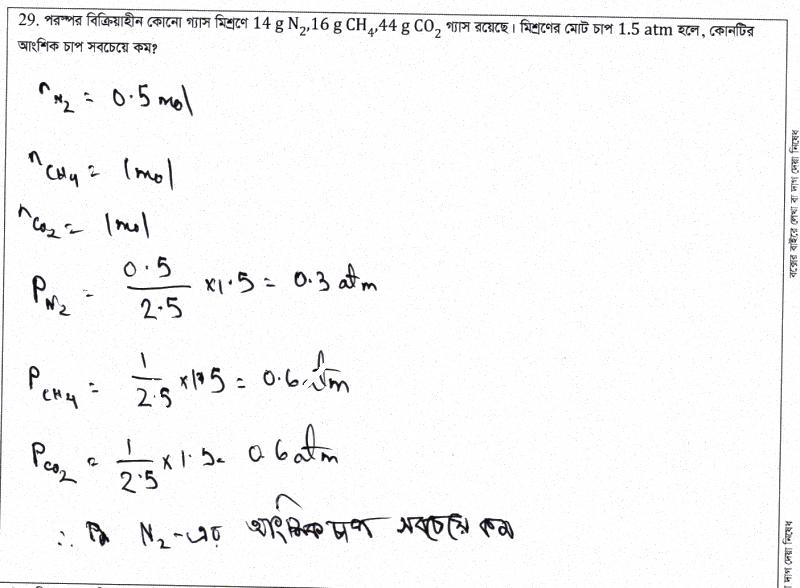 29. পরস্পর বিক্রিয়াহীন কোনো গ্যাস মিশ্রণে 14 g N₂,16 g CH₄,44 g CO₂ গ্যাস রয়েছে। মিশ্রণের মোট চাপ 1.5 atm হলে, কোনটির
আংশিক চাপ সবচেয়ে কম?
n_N₂ = 0.5 mol
n_CH₄ = 1mol
n_CO₂ = 1mol
P_N₂ = 0.5/2.5 ×1.5 = 0.3 atm
P_CH₄ = 1/2.5 ×1.5 = 0.6 atm
P_CO₂ = 1/2.5 ×1.5 = 0.6 atm
∴ N₂-এর আংশিক চাপ সবচেয়ে কম
বক্সের বাইরে লেখা বা দাগ দেয়া নিষেধ
দাগ দেয়া নিষেধ